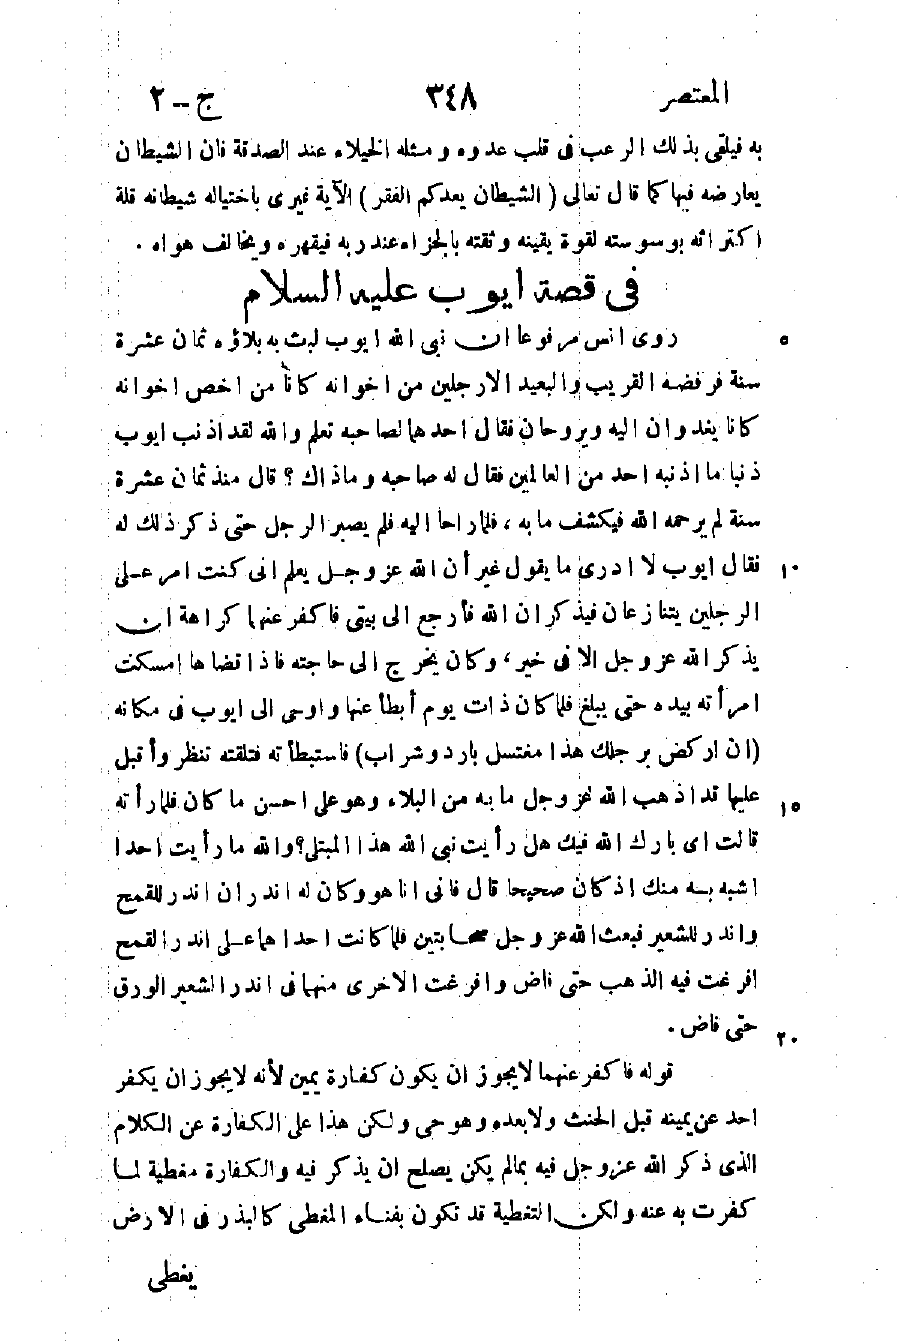 المعتصر ٣٤٨ ج - ٢
به فيلقى بذلك الرعب فى قلب عدوه ومثله الخيلاء عند الصدقة فان الشيطان
يعارضه فيها كما قال تعالى ( الشيطان يعدكم الفقر ) الآية فيرى باختياله شيطانه قلة
اكتراثه بوسوسته لقوة يقينه وثقته بالجزاء عند ربه فيقهره ويخالف هواه .
فى قصة ايوب عليه السلام
روى انس مرفوعا ان نبى الله ايوب لبث به بلاؤه ثمان عشرة ٥
سنة فرفضه القريب والبعيد الا رجلين من اخوانه كانا من اخص اخوانه
كانا يغدوان اليه ويروحان فقال احدهما لصاحبه تعلم والله لقد اذنب ايوب
ذنبا ما اذنبه احد من العالمين فقال له صاحبه وما ذاك ؟ قال منذ ثمان عشرة
سنة لم يرحمه الله فيكشف ما به ، فلما راحا اليه فلم يصبر الرجل حتى ذكر ذلك له
فقال ايوب لا ادرى ما يقول غير أن الله عز وجل يعلم انى كنت امر على ١٠
الرجلين يتنازعان فيذكران الله فأرجع الى بيتى فاكفر عنهما كراهة ان
يذكر الله عز وجل الا فى خير ، وكان يخرج الى حاجته فاذا قضاها امسكت
امرأته بيده حتى يبلغ فلما كان ذات يوم أبطأ عنها واوحى الى ايوب فى مكانه
(ان اركض برجلك هذا مغتسل بارد وشراب) فاستبطأته فتلقته تنظر وأقبل
عليها قد اذهب الله عز وجل ما به من البلاء وهو على احسن ما كان فلما رأته ١٥
قالت اى بارك الله فيك هل رأيت نبى الله هذا المبتلى؟ والله ما رأيت احدا
اشبه به منك اذ كان صحيحا قال فانى انا هو وكان له اندران اندر للقمح
واندر للشعير فبعث الله عز وجل سحابتين فلما كانت احداهما على اندر القمح
افرغت فيه الذهب حتى فاض وافرغت الاخرى منهما فى اندر الشعير الورق
حتى فاض . ٢٠
قوله فاكفر عنهما لا يجوز ان يكون كفارة يمين لأنه لا يجوز ان يكفر
احد عن يمينه قبل الحنث ولا بعده وهو حى ولكن هذا على الكفارة عن الكلام
الذى ذكر الله عز وجل فيه بما لم يكن يصلح ان يذكر فيه والكفارة مغطية لما
كفرت به عنه ولكن التغطية قد تكون بفناء المغطى كالبذر فى الارض
يغطى